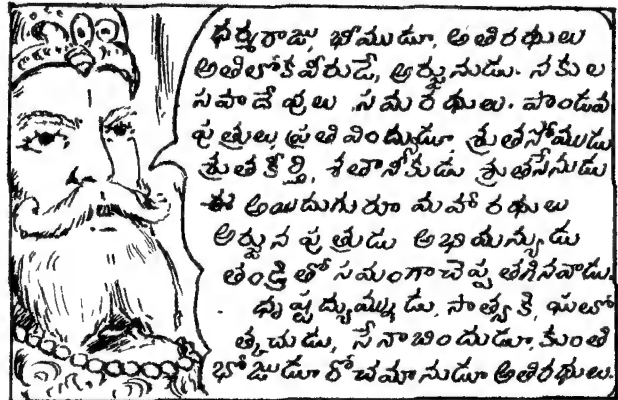 ధర్మరాజు, భీముడూ, అతిరథులు
అతిలోకవీరుడే, అర్జునుడు. నకుల
సహదేవులు సమరథులు. పాండవ
పుత్రులు, ప్రతివింధ్యుడూ, శ్రుతసోముడు
శ్రుతకీర్తి, శతానీకుడు శ్రుతసేనుడు
ఈ అయిదుగురూ మహారథులు
అర్జున పుత్రుడు అభిమన్యుడు
తండ్రితో సమంగా చెప్ప తగినవాడు.
ధృష్టద్యుమ్నుడు, సాత్యకి, ఘటో
త్కచుడు, సేనాబిందుడూ, కుంతి
భోజుడూ రోచమానుడూ అతిరథులు.